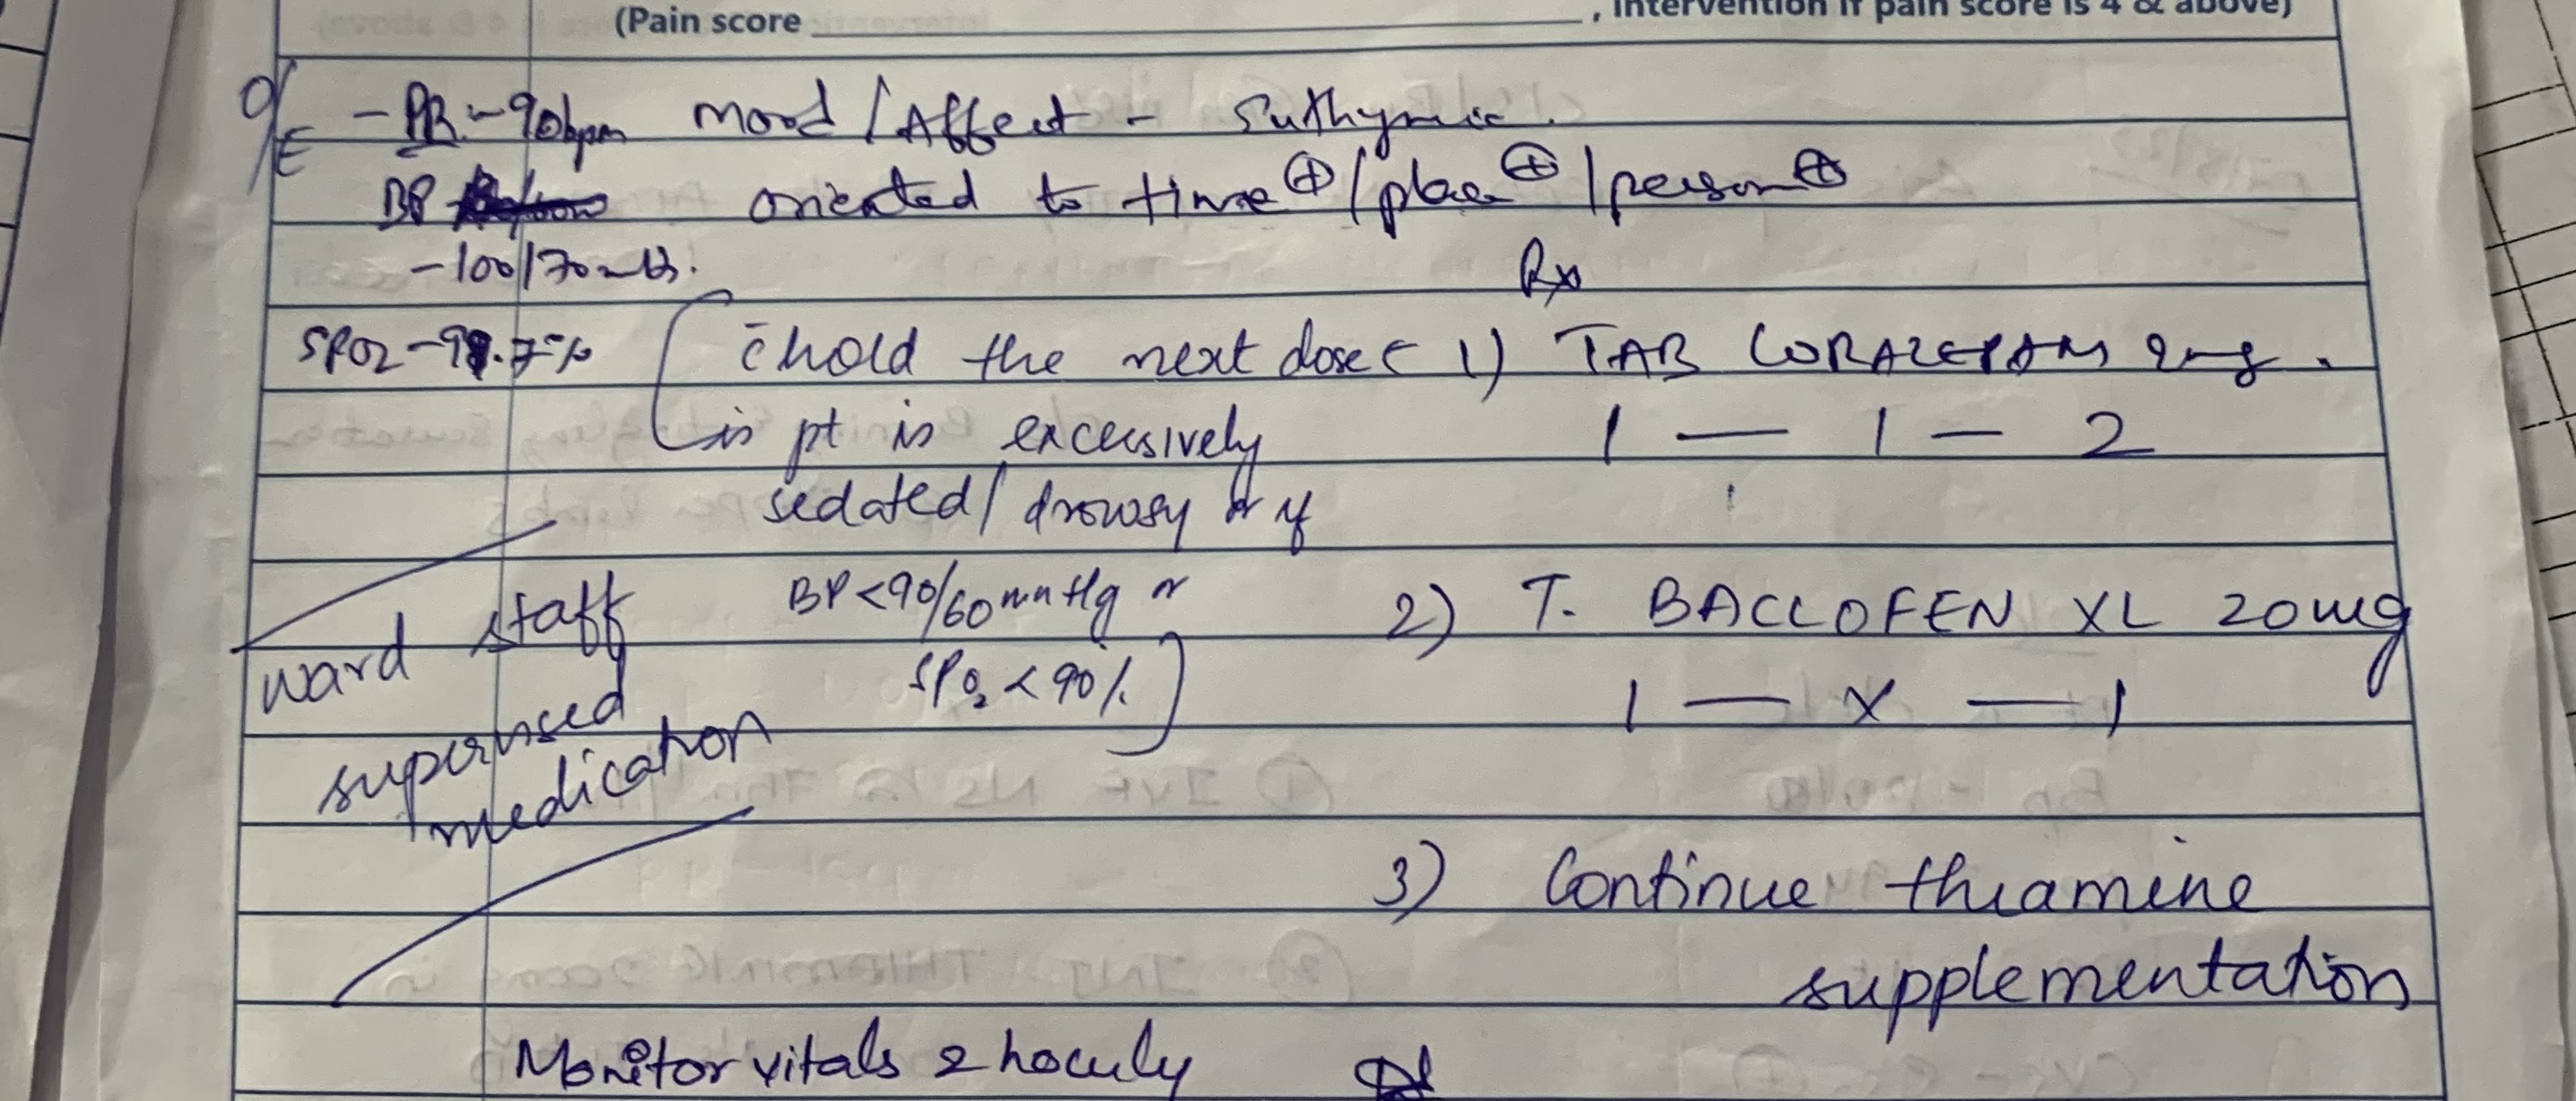 (Pain score ____________, intervention if pain score is 4 & above)
O/E - PR - 90bpm mood / Affect - Euthymic.
BP oriented to time ⊕ / place ⊕ / person ⊕
- 100/70
Rx
SPO2 - % c̄hold the next dose 1) TAB LORAZEPAM 2mg.
is pt is excessively 1 — 1 — 2
sedated / drowsy or if
ward staff BP <90/60 mmHg or 2) T. BACLOFEN XL 20mg
supervised SPO₂ < 90% 1 — X — 1
medication
3) Continue thiamine
supplementation
Monitor vitals 2 hourly